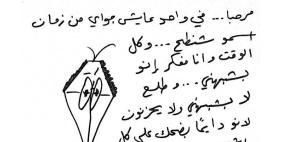 مرحبا... في واحد عايش جواي من زمان
اسمو شنطح... وكل
الوقت وانا مفكر إنو
بشبهني... وطلع
لا بشبهني ولا بحزنون
لانو دايمًا بضحك على كل